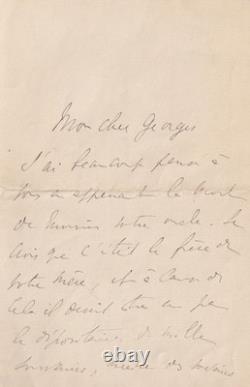 Mon cher Georges
J'ai beaucoup pensé à
vous en apprenant la mort
de Monsieur votre oncle. Je
crois que c'était le frère de
votre mère, et à cause de
cela il devait être un peu
le dépositaire de mille
souvenirs,